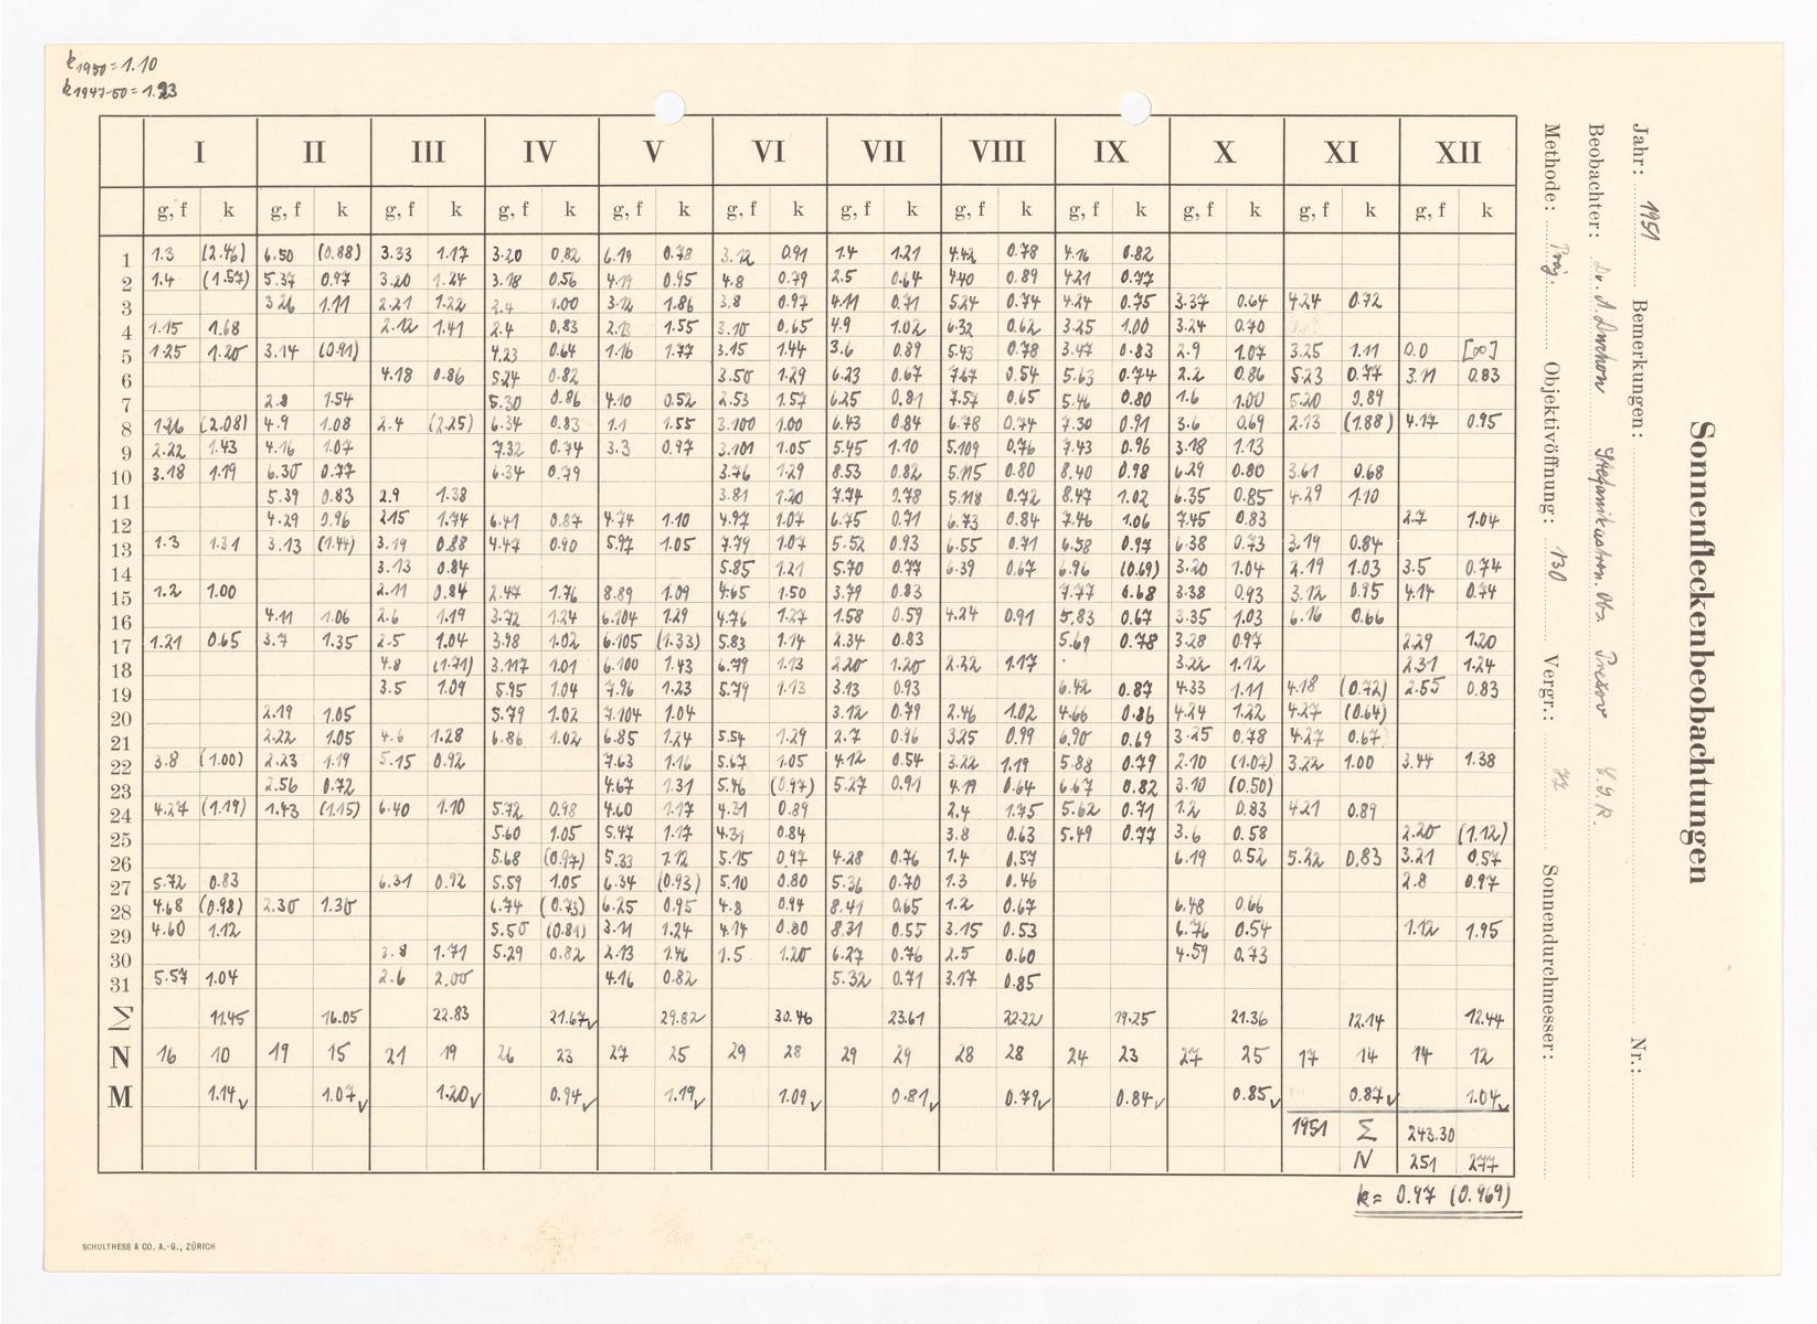 k1950=1.10
k1947-50=1.23
I II III IV V VI VII VIII IX X XI XII
g, f k g, f k g, f k g, f k g, f k g, f k g, f k g, f k g, f k g, f k g, f k g, f k
1 1.3 (2.46) 6.50 (0.88) 3.33 1.17 3.20 0.82 6.19 0.78 3.12 0.91 1.4 1.21 4.42 0.78 4.16 0.82
2 1.4 (1.57) 5.37 0.97 3.20 1.24 3.18 0.56 4.19 0.95 4.8 0.79 2.5 0.64 4.40 0.89 4.21 0.77
3 3.26 1.11 2.21 1.22 2.4 1.00 3.12 1.86 3.8 0.97 4.11 0.71 5.24 0.74 4.24 0.75 3.37 0.64 4.24 0.72
4 1.15 1.68 2.12 1.41 2.4 0.83 2.13 1.55 3.10 0.65 4.9 1.02 6.32 0.62 3.25 1.00 3.24 0.70
5 1.25 1.20 3.14 (0.91) 4.23 0.64 1.16 1.77 3.15 1.44 3.6 0.89 5.43 0.78 3.47 0.83 2.9 1.07 3.25 1.11 0.0 [∞]
6 4.18 0.86 5.24 0.82 3.50 1.29 6.23 0.67 7.67 0.54 5.63 0.74 2.2 0.86 5.23 0.77 3.11 0.83
7 2.8 1.54 5.30 0.86 4.10 0.52 2.53 1.57 6.25 0.81 7.57 0.65 5.46 0.80 1.6 1.00 5.20 0.89
8 1.26 (2.08) 4.9 1.08 2.4 (2.25) 6.34 0.83 1.1 1.55 3.100 1.00 6.43 0.84 6.78 0.74 7.30 0.91 3.6 0.69 2.13 (1.88) 4.17 0.95
9 2.22 1.43 4.16 1.07 7.32 0.74 3.3 0.97 3.101 1.05 5.45 1.10 5.109 0.76 7.43 0.96 3.18 1.13
10 3.18 1.19 6.30 0.77 6.34 0.79 3.76 1.29 8.53 0.82 5.115 0.80 8.40 0.98 6.29 0.80 3.61 0.68
11 5.39 0.83 2.9 1.38 3.81 1.20 7.74 0.78 5.118 0.72 8.47 1.02 6.35 0.85 4.29 1.10
12 4.29 0.96 2.15 1.74 6.41 0.87 4.74 1.10 4.97 1.07 6.75 0.71 6.73 0.84 7.46 1.06 7.45 0.83 2.7 1.04
13 1.3 1.31 3.13 (1.44) 3.19 0.88 4.47 0.90 5.97 1.05 7.79 1.07 5.52 0.93 6.55 0.71 6.58 0.97 6.38 0.73 3.19 0.84
14 3.13 0.84 5.85 1.21 5.70 0.77 6.39 0.67 6.96 (0.69) 3.20 1.04 2.19 1.03 3.5 0.74
15 1.2 1.00 2.11 0.84 2.47 1.76 8.89 1.09 4.65 1.50 3.79 0.83 7.77 0.68 3.38 0.93 3.12 0.95 4.14 0.74
16 4.11 1.06 2.6 1.19 3.72 1.24 6.104 1.29 4.76 1.27 1.58 0.59 4.24 0.91 5.83 0.67 3.35 1.03 6.16 0.66
17 1.21 0.65 3.7 1.35 2.5 1.04 3.98 1.02 6.105 (1.33) 5.83 1.14 2.34 0.83 5.69 0.78 3.28 0.97 2.29 1.20
18 4.8 (1.71) 3.117 1.01 6.100 1.43 6.79 1.13 2.20 1.20 2.22 1.17 3.22 1.12 2.31 1.24
19 3.5 1.09 5.95 1.04 7.96 1.23 5.79 1.13 3.13 0.93 6.42 0.87 4.33 1.11 4.18 (0.72) 2.55 0.83
20 2.19 1.05 5.79 1.02 7.104 1.04 3.12 0.79 2.46 1.02 4.66 0.86 4.24 1.22 4.27 (0.64)
21 2.22 1.05 4.6 1.28 6.86 1.02 6.85 1.24 5.54 1.29 2.7 0.96 3.25 0.99 6.90 0.69 3.25 0.78 4.27 0.67
22 3.8 (1.00) 2.23 1.19 5.15 0.92 7.63 1.16 5.67 1.05 4.12 0.54 3.22 1.19 5.88 0.79 2.10 (1.07) 3.22 1.00 3.44 1.38
23 2.56 0.72 4.67 1.31 5.46 (0.97) 5.27 0.91 4.19 0.64 6.67 0.82 3.10 (0.50)
24 4.27 (1.19) 1.43 (1.15) 6.40 1.10 5.72 0.98 4.60 1.17 4.31 0.89 2.4 1.75 5.62 0.71 1.2 0.83 4.21 0.89
25 5.60 1.05 5.47 1.17 4.31 0.84 3.8 0.63 5.49 0.77 3.6 0.58 2.20 (1.12)
26 5.68 (0.97) 5.33 1.12 5.15 0.97 4.28 0.76 1.4 0.57 6.19 0.52 5.22 0.83 3.21 0.57
27 5.72 0.83 6.31 0.92 5.59 1.05 6.34 (0.93) 5.10 0.80 5.36 0.70 1.3 0.46 2.8 0.97
28 4.68 (0.98) 2.30 1.30 6.74 (0.73) 6.25 0.95 4.8 0.94 8.41 0.65 1.2 0.67 6.48 0.66
29 4.60 1.12 5.50 (0.81) 3.11 1.24 4.14 0.80 8.31 0.55 3.15 0.53 6.76 0.54 1.12 1.95
30 3.8 1.71 5.29 0.82 2.13 1.46 1.5 1.20 6.27 0.76 2.5 0.60 4.59 0.73
31 5.57 1.04 2.6 2.00 4.16 0.82 5.32 0.71 3.17 0.85
Σ 11.45 16.05 22.83 21.67✓ 29.82 30.46 23.61 22.22 19.25 21.36 12.14 12.44
N 16 10 19 15 21 19 26 23 27 25 29 28 29 29 28 28 24 23 27 25 17 14 14 12
M 1.14✓ 1.07✓ 1.20✓ 0.94✓ 1.19✓ 1.09✓ 0.81✓ 0.79✓ 0.84✓ 0.85✓ 0.87✓ 1.04✓
1951 Σ 243.30
N 251 277
k= 0.97 (0.969)
SCHULTHESS & CO. A.-G., ZÜRICH
Sonnenfleckenbeobachtungen
Jahr: 1951 Bemerkungen: Nr.:
Beobachter: Dr. Obs. Presov
Methode: Proj. Objektivöffnung: 130 Vergr.: 72 Sonnendurchmesser: